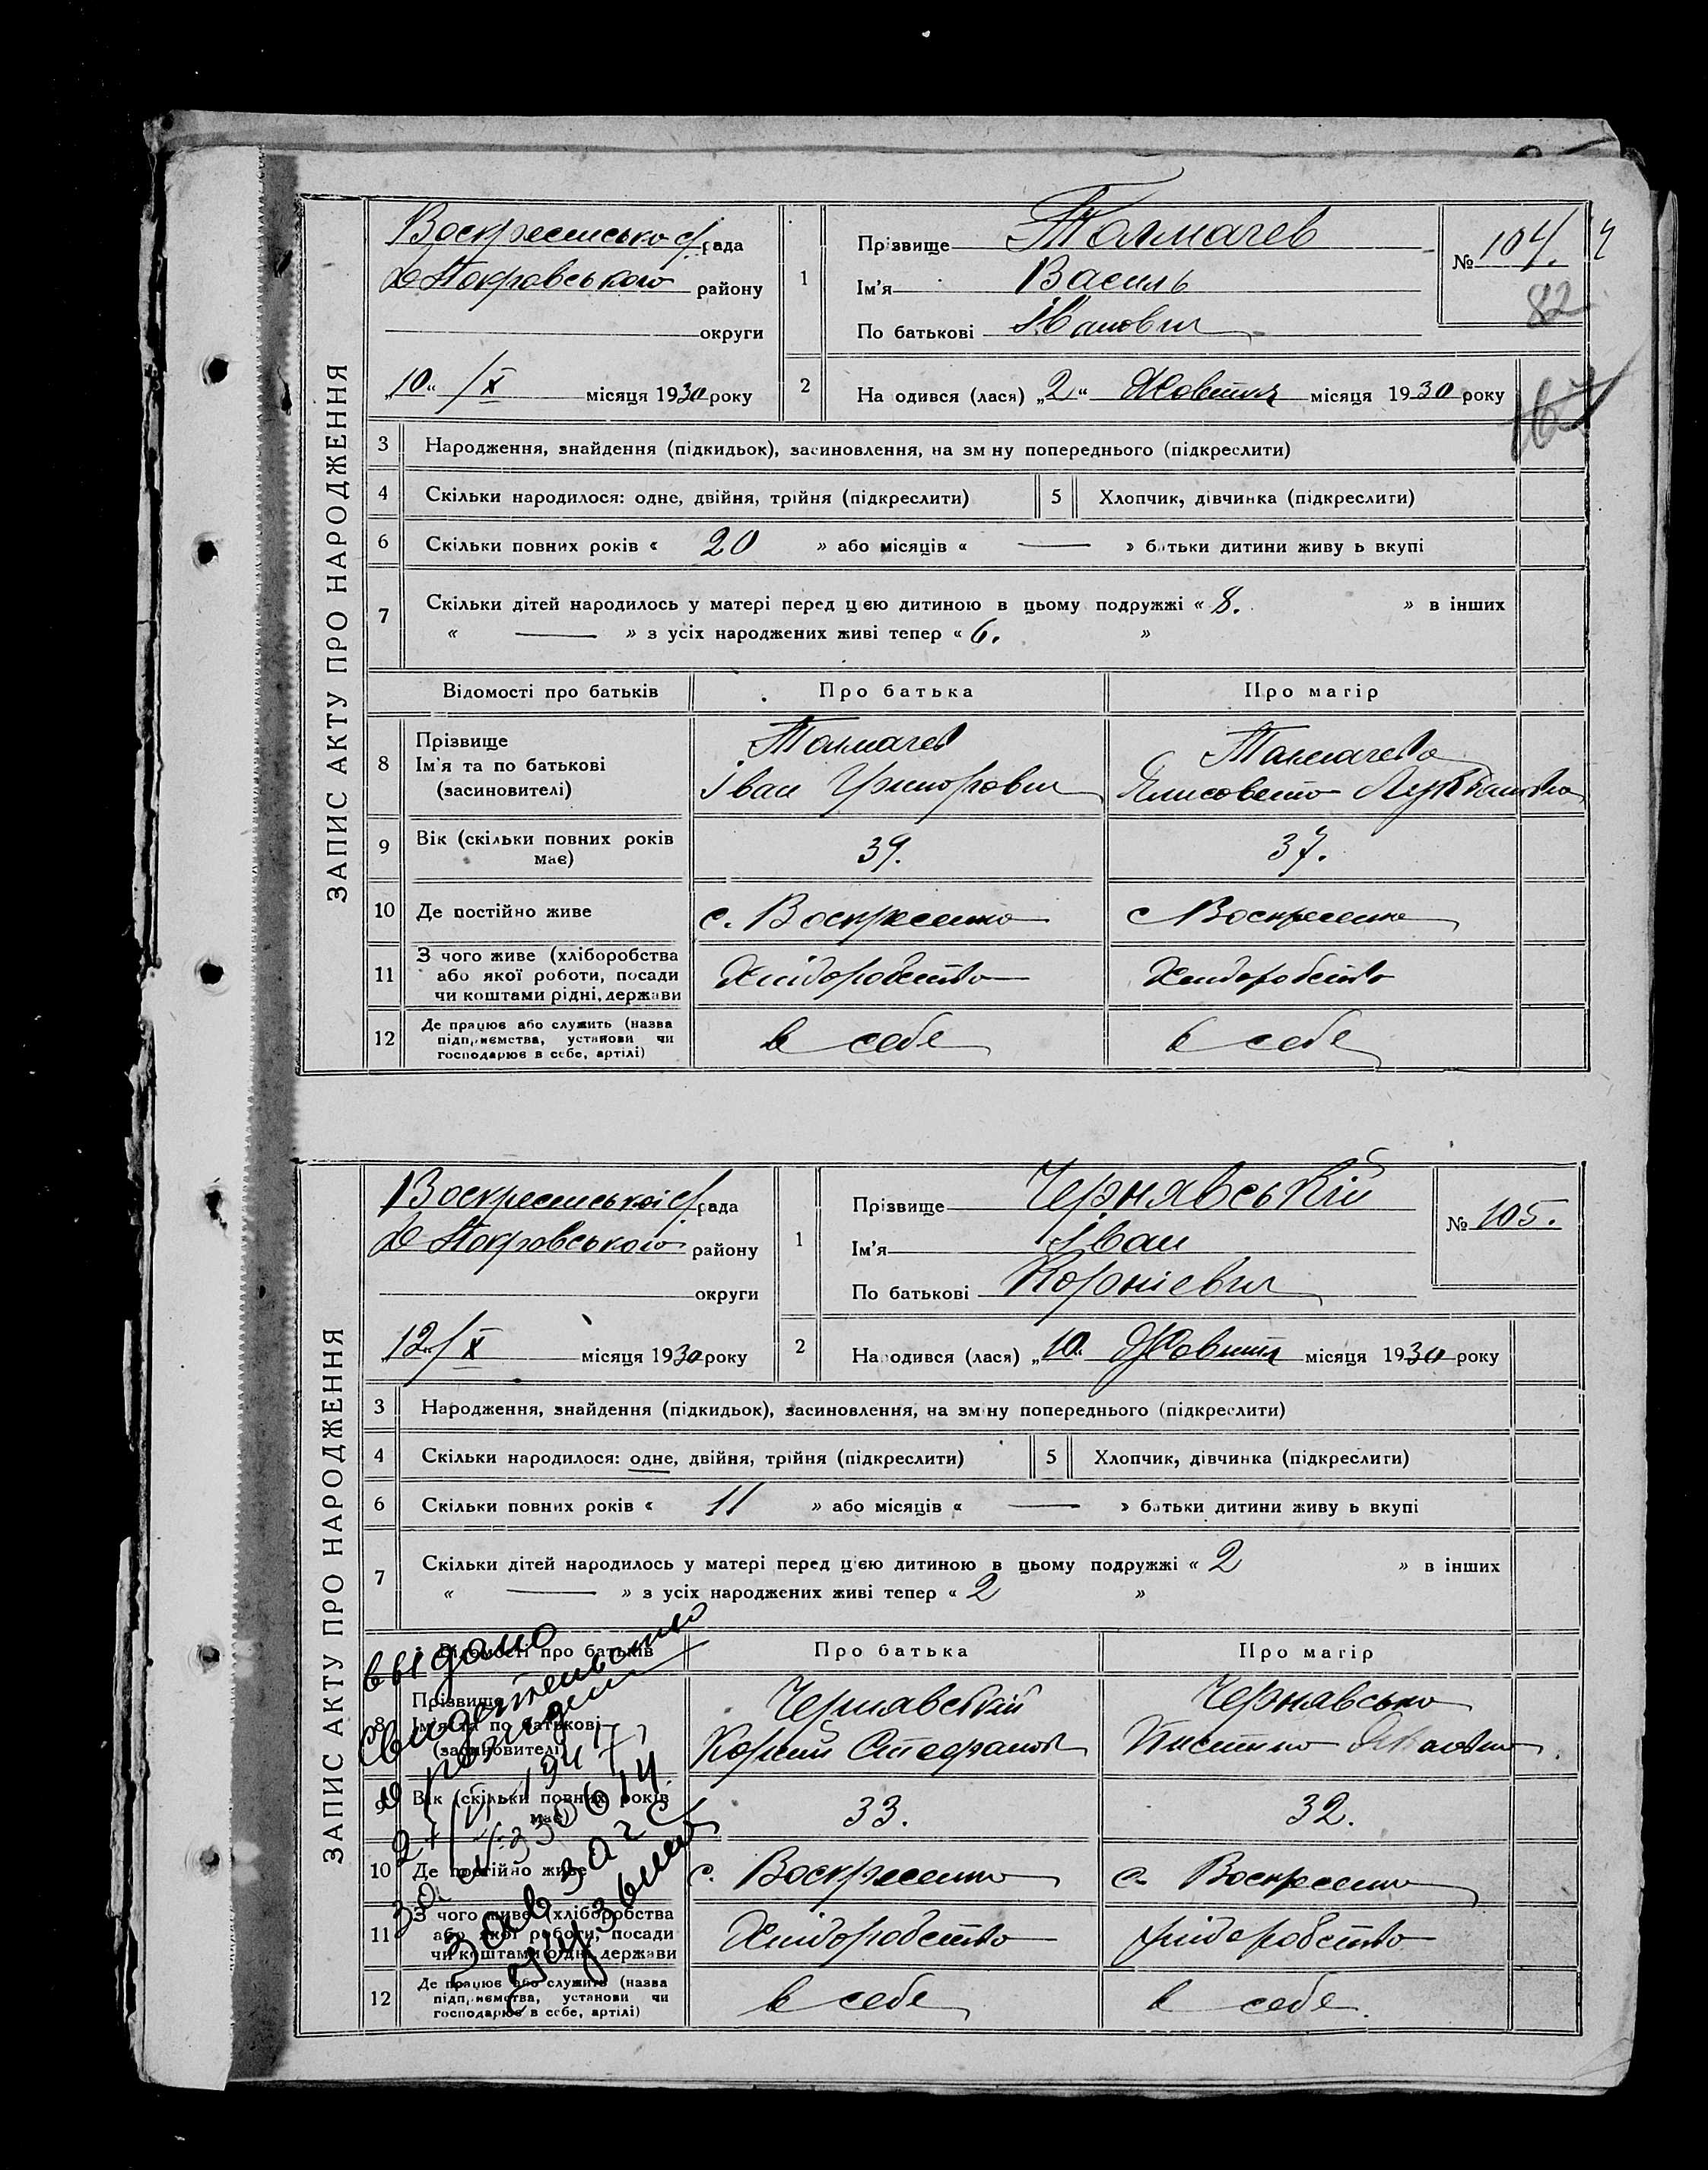 ЗАПИС АКТУ ПРО НАРОДЖЕННЯ
Воскресенсько с/рада
Покровського району
округи
„10“ /X місяця 1930 року
1
Прізвище Толмачев
Ім'я Василь
По батькові Іванович
№ 104.
82
2
На одився (лася) „2“ Жовтня місяця 1930 року
167
3 Народження, знайдення (підкидьок), засиновлення, на зм ну попереднього (підкреслити)
4 Скільки народилося: одне, двійня, трійня (підкреслити)
5 Хлопчик, дівчинка (підкреслити)
6 Скільки повних років « 20 » або місяців « — » батьки дитини живу ь вкупі
7 Скільки дітей народилось у матері перед цією дитиною в цьому подружжі « 8. » в інших
« — » з усіх народжених живі тепер « 6. »
Відомості про батьків
Про батька
Про матір
8 Прізвище
Ім'я та по батькові
(засиновителі)
Толмачев
Іван Григорович
Толмачева
Елисовета
9 Вік (скільки повних років
має)
39.
37.
10 Де постійно живе
с. Воскресенка
с Воскресенка
11 З чого живе (хліборобства
або якої роботи, посади
чи коштами рідні, держави
Хлідоробство
Хлидоробство
12 Де працює або служить (назва
підприємства, установи чи
господарює в себе, артілі)
в себе
в себе
ЗАПИС АКТУ ПРО НАРОДЖЕННЯ
Воскресенської с/рада
Покровського району
округи
„12“/X місяця 1930 року
1
Прізвище Чернявський
Ім'я Іван
По батькові Корнієвич
№ 105.
2
На одився (лася) „10. Жовтня місяця 1930 року
3 Народження, знайдення (підкидьок), засиновлення, на зм ну попереднього (підкреслити)
4 Скільки народилося: одне, двійня, трійня (підкреслити)
5 Хлопчик, дівчинка (підкреслити)
6 Скільки повних років « 11 » або місяців « — » батьки дитини живу ь вкупі
7 Скільки дітей народилось у матері перед цією дитиною в цьому подружжі « 2 » в інших
« — » з усіх народжених живі тепер « 2 »
Відомості про батьків
Про батька
Про матір
8 Прізвище
Ім'я та по батькові
(засиновителі)
Чернявський
Корній Стефанов
Чернявська
9 Вік (скільки повних років
має)
33.
32.
10 Де постійно живе
с. Воскресенка
с. Воскресенка
11 З чого живе (хліборобства
або якої роботи, посади
чи коштами рідні, держави
Хлидоробство
хлідоробство
12 Де працює або служить (назва
підприємства, установи чи
господарює в себе, артілі)
в себе
в себе.
выдано
свидетельство
о рождении
за
Зав загс